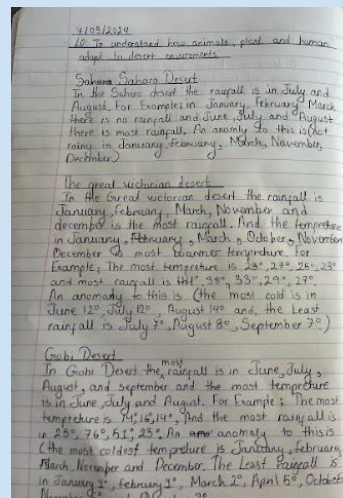 7/05/2024
LO: To understand how animals, plant and human
adapt to desert enviroments
Sahara Desert
In the Sahara desert the rainfall is in July and
August. For Example: in January, February, March
there is no rainfall and June, July and August
there is most rainfall. An anomly to this is (not
rainy in January, February, March, November,
December.)
The great victorian desert
In the Great victorian desert the rainfall is
January, february, March, November and
december is the most rainfall. And the tempreture
in January, February, March, October, November
December is most warmer tempreture. For
Example; The most tempreture is 28°, 27°, 25°, 23°
and most rainfall is 38°, 33°, 29°, 27°.
An anomady to this is (the most cold is in
June 12°, July 12°, August 14° and, the Least
rainfall is July 7°, August 8°, September 7°)
Gobi Desert
In Gobi Desert the most rainfall is in June, July,
August, and september and the most tempreture
is in June, July and August. For Example: The most
tempreture is 14°, 16°, 14°, And the most rainfall is
in 25°, 76°, 51°, 25°. An anomaly to this is
(the most coldest tempreture is January, february,
March, November and December. The Least Rainfall is
in January 1°, february 1°, March 2°, April 5°, October